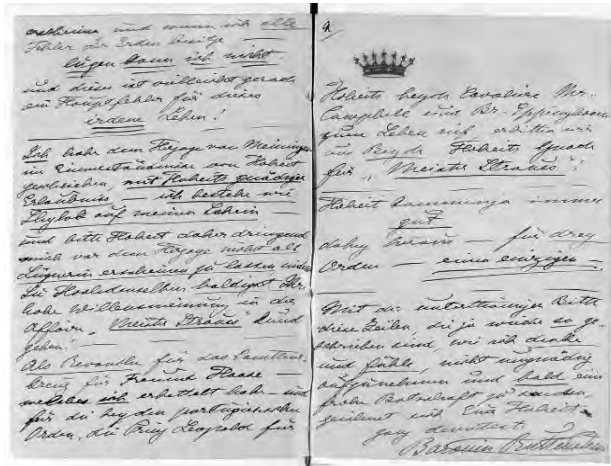 und wenn ich alle
Fehler der Erden besitze —
lügen kann ich nicht.
und dieses ist vielleicht gerade
ein Hauptfehler für dieses
irdene Leben!
Ich habe dem Herzoge von Meiningen
im von Hoheit
geschrieben, mit Hoheits gnädiger
Erlaubniss — ich bestehe wie
Shylok auf meinen Schein —
und bitte Hoheit daher dringend
mich vor dem Herzoge nicht als
Lügnerin erscheinen zu lassen indem
baldigst Ihre
hohe Willensmeinung in die
Affaire „Meister Strauss" kund
geben!
Als für das
kreuz für Freund Haase
welches ich erbettelt habe — und
für die beyden portugiesischen
Orden, die Prinz Leopold für
2
Hoheits beyde Cavaliere Mr.
Campbell und Br.
zum Leben rief, erbitten wir
uns Beyde Hoheits Gnade
für „Meister Strauss"!
Hoheit immer
gut
dabey heraus — für drey
Orden — einen einzigen —.
Mit der unterthänigen Bitte
diese Zeilen, die ja wieder so ge-
schrieben sind, wie ich denke
und fühle, nicht ungnädig
aufzunehmen und bald eine
frohe Botschaft zu senden
zeichnet sich Eurer Hoheit
ganz devoteste
Baronin